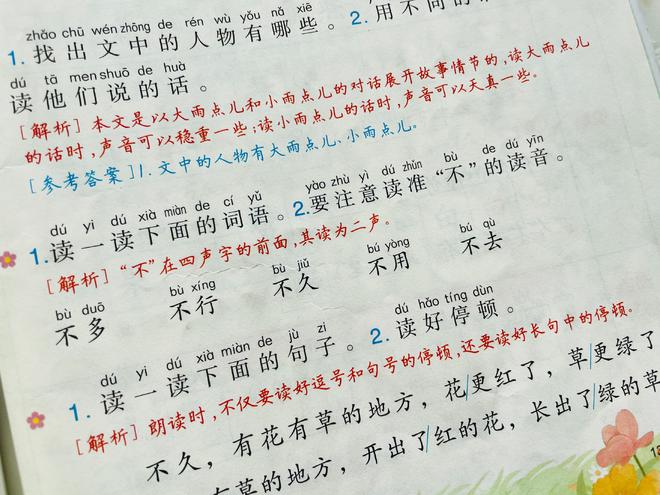 zhǎo chū wén zhōng de rén wù yǒu nǎ xiē
1. 找出文中的人物有哪些。2. 用不同的
dú tā men shuō de huà
读他们说的话。
[解析] 本文是以大雨点儿和小雨点儿的对话展开故事情节的,读大雨点儿
的话时,声音可以稳重一些;读小雨点儿的话时,声音可以天真一些。
[参考答案] 1. 文中的人物有大雨点儿、小雨点儿。
dú yi dú xià miàn de cí yǔ yào zhù yì dú zhǔn bù de dú yīn
1. 读一读下面的词语。2. 要注意读准“不”的读音。
[解析] “不”在四声字的前面,其读为二声。
bù duō bù xíng bù jiǔ bú yòng bú qù
不多 不行 不久 不用 不去
dú yi dú xià miàn de jù zi dú hǎo tíng dùn
1. 读一读下面的句子。2. 读好停顿。
[解析] 朗读时,不仅要读好逗号和句号的停顿,还要读好长句中的停顿。
不久,有花有草的地方,花/更红了,草/更绿了
有草的地方,开出了/红的花,长出了/绿的草